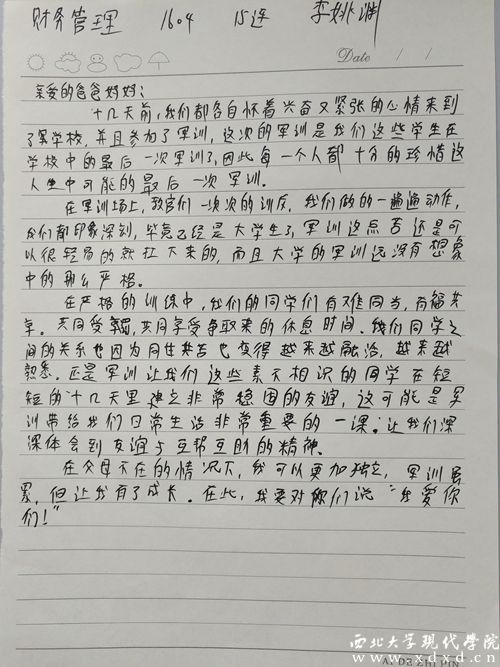 财务管理 1604 15连 李姚渊
Date / /
亲爱的爸爸妈妈:
十几天前,我们都各自怀着兴奋又紧张的心情来到
了军学校,并且参加了军训,这次的军训是我们这些学生在
学校中的最后一次军训了,因此每一个人都十分的珍惜这
人生中可能的最后一次军训。
在军训场上,教官们一次次的训斥,我们做的一遍遍动作,
我们都印象深刻,毕竟已经是大学生了,军训这点苦还是可
以很轻易的就扛下来的,而且大学的军训远没有想象
中的那么严格。
在严格的训练中,我们的同学们有难同当,有福共
享。共同受罚,共同享受争取来的休息时间。我们同学之
间的关系也因为同甘共苦也变得越来越融洽,越来越
熟悉。还是军训让我们这些素不相识的同学在短
短的十几天里建立非常稳固的友谊,这可能是军
训带给我们日常生活非常重要的一课。让我们深
深体会到友谊与互帮互助的精神。
在父母不在的情况下,我可以更加独立,军训虽
累,但让我有了成长。在此,我要对你们说“我爱你
们!”
西北大学现代学院
www.xdxd.cn